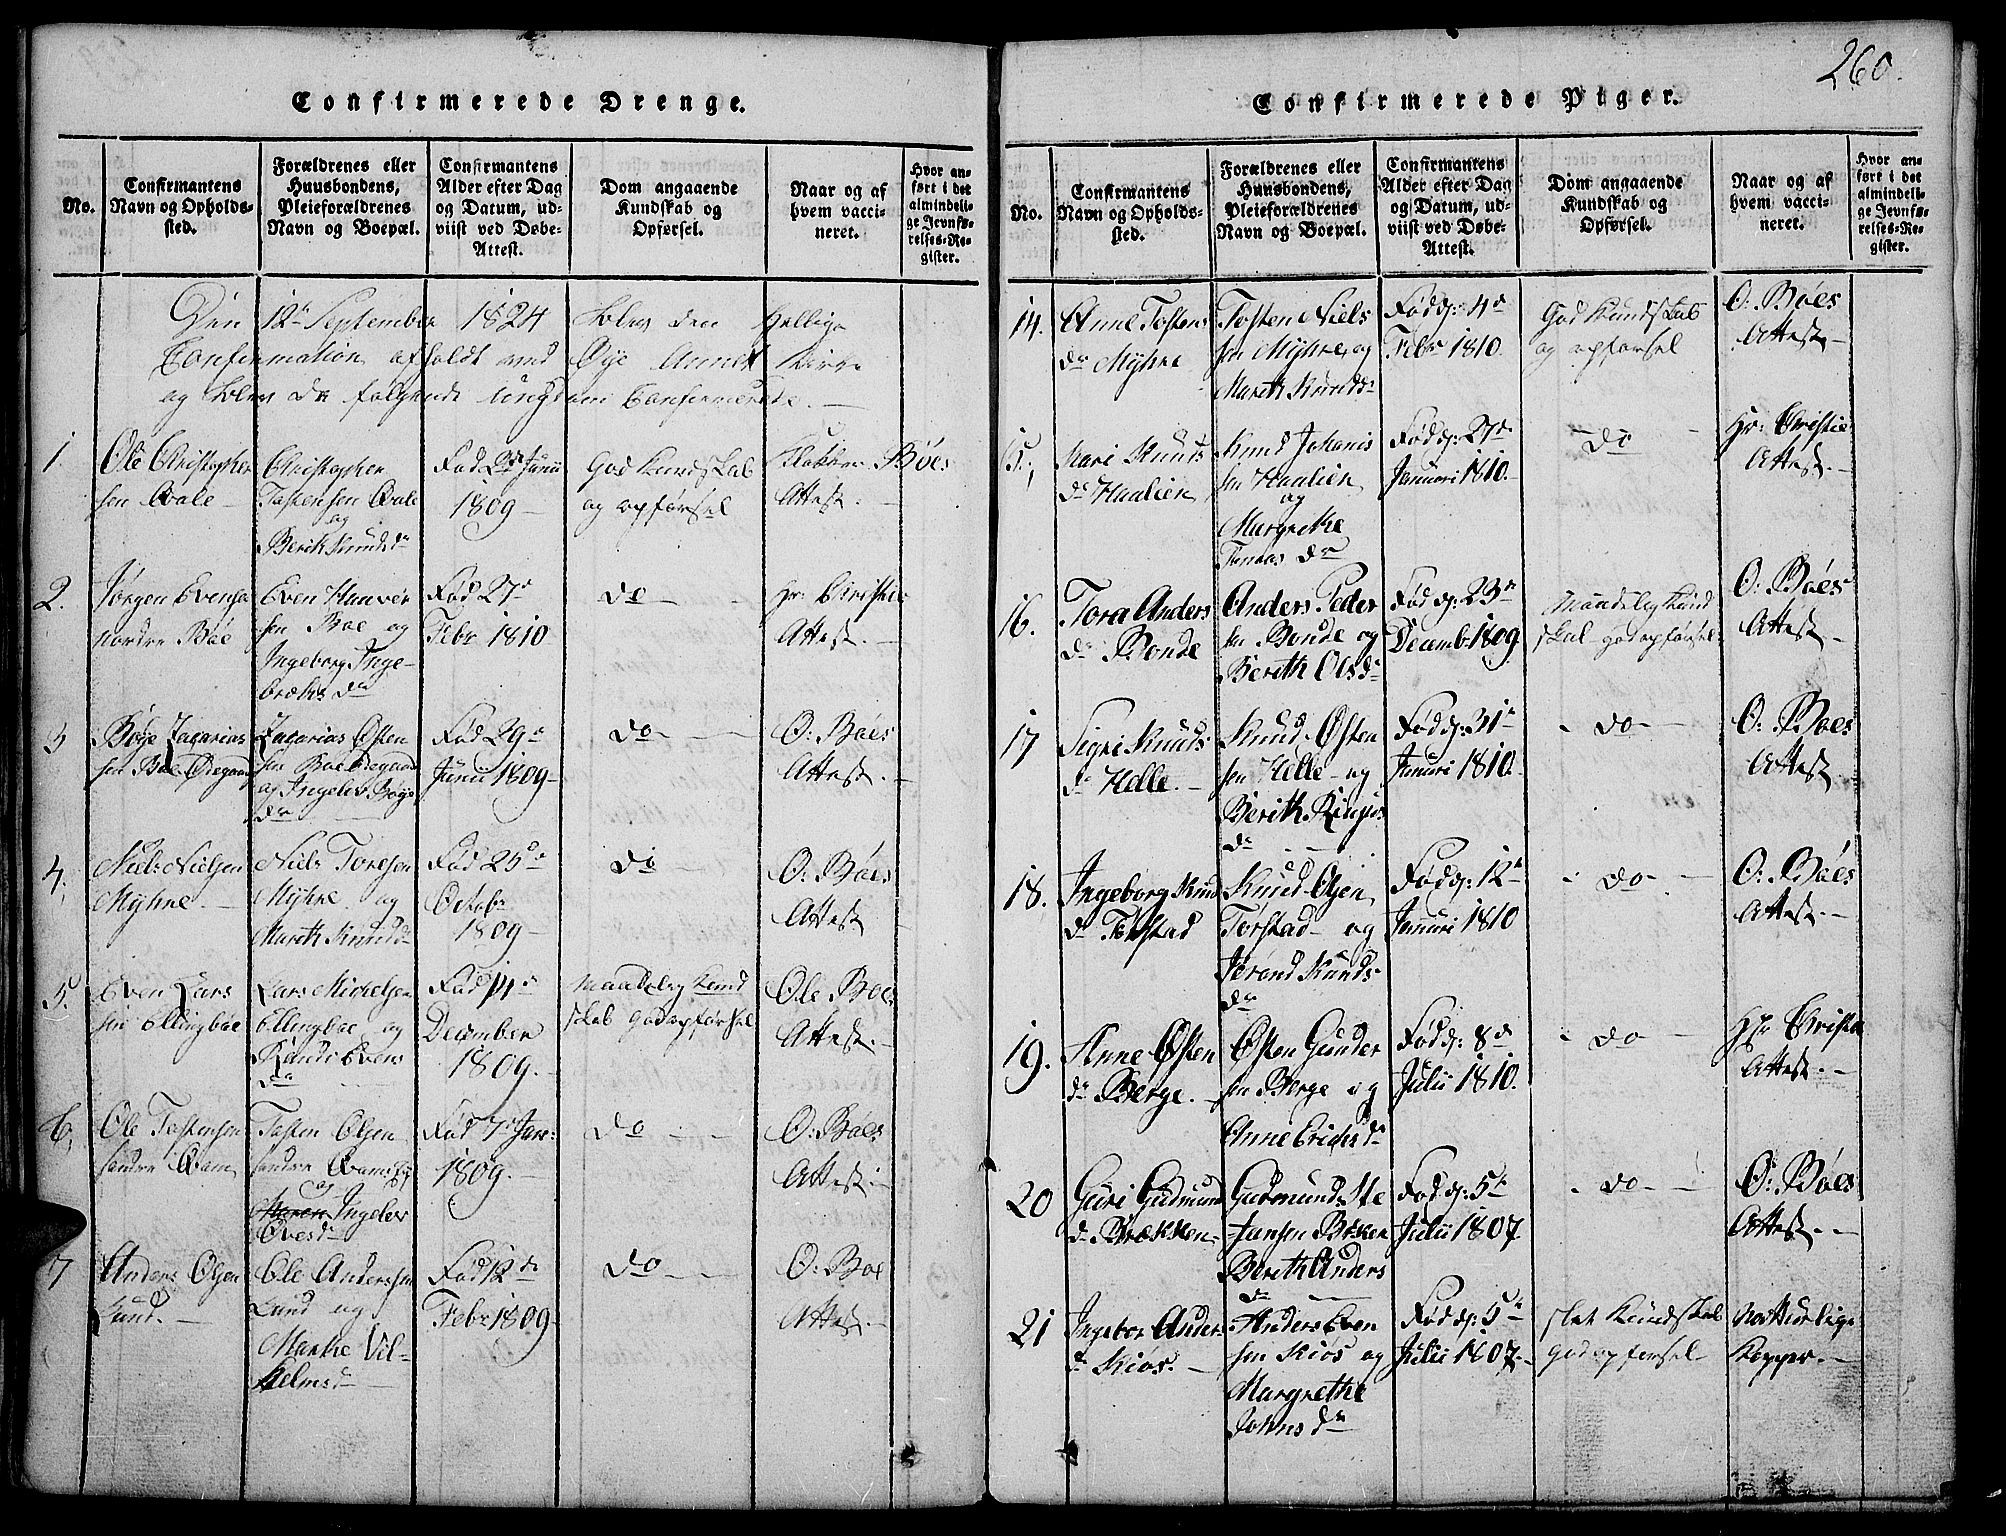 260.
Confirmerede Drenge.
No.
Confirmantens
Navn og Opholds-
sted.
Forældrenes eller
Huusbondens,
Pleieforældrenes
Navn og Boepæl.
Confirmantens
Alder efter Dag
og Datum, ud-
viist ved Døbe-
Attest.
Dom angaaende
Kundskab og
Opførsel.
Naar og af
hvem vacci-
neret.
Hvor an-
ført i det
almindeli-
ge Jevnfø-
relses-Re-
gister.
Den 12te September 1824 blev den Hellige
Confirmation afholdt ved Øye Annex Kirke
og blev da følgende ungdom Confirmerede.
1.
Ole Christopher
sen Qvale
Christopher
Tostensen Qvale
og
Berith Knudsdr
Fød 2de Junii
1809
God Kundskab
og opførsel
Klokker Bøes
Attest.
2.
Jørgen Evensen
nordre Bøe
Even Haaver
sen Boe og
Ingeborg Inge-
brekts dr
Fød 27de
Febr 1810
do
Hr. Christie
Attest.
3
Bøye Zacarias
sen Boe Ødegaar
Zacarias Østen
sen Boe Ødegaar
og Ingeler Bøye
dr
Fød 29de
Junii 1809
do
O: Bøes
Attest.
4.
Niels Nielsen
Myhre
Niels Toresen
Myhre og
Marith Knudsdr
Fød 25de
Octobr
1809
do
O: Bøes
Attest
5.
Even Lars
sen Ellingbøe
Lars Michelsen
Ellingboe og
Randi Evens
dr
Fød 14de
December
1809.
Maadelig Kund
skab god opførsel
Ole Boes
Attest.
6.
Ole Tostensen
søndre Qvam
Tosten Olsen
søndre Qvam
og
Ingeler
Ovesdr
Fød 7de Jan:
1809.
do
O: Bøes
Attest.
7
Anders Olsen
Lund.
Ole Andersen
Lund og
Marthe Vil-
helmsdr
Fød 12de
Febr 1809
do
O: Boe
Attest.
Confirmerede Piger.
No.
Confirmantens
Navn og Opholds-
sted.
Forældrenes eller
Huusbondens,
Pleieforældrenes
Navn og Boepæl.
Confirmantens
Alder efter Dag
og Datum, ud-
viist ved Døbe-
Attest.
Dom angaaende
Kundskab og
Opførsel.
Naar og af
hvem vacci-
neret.
Hvor an-
ført i det
almindeli-
ge Jevnfø-
relses-Re-
gister.
14.
Anne Tostens
dr Myhre
Tosten Niels
sen Myhre og
Marith Knudsdr
Fød d: 4de
Febr 1810.
God Kundskab
og opførsel
O: Bøes
Attest
15.
Mari Knuds
dr Haalien
Knud Johanis
sen Haalien
og
Margrethe
Tomas dr
Fød d: 27de
Januari 1810.
do
Hr: Christie
Attest.
16.
Tora Anders
dr Bonde
Anders Peder
sen Bonde og
Berith Olsdr
Fød d: 23de
Decemb 1809
Maadelig Kund
skab god opførsel
O: Boes
Attest
17
Sigri Knuds
dr Helle.
Knud Østen
sen Helle og
Berith
dr
Fød d: 31te
Januari 1810.
do
O: Boes
Attest
18.
Ingeborg Knud
dr Torstad
Knud Olsen
Torstad og
Jørand Knuds
dr
Fød d: 12te
Januari 1810
do
O: Bøes
Attest.
19.
Anne Østen
dr Berge.
Østen Gunder
sen Berge og
Anne Erichsdr
Fød d: 8de
Julii 1810.
do
Hr Christie
Attest.
20
Guri Gudmund
dr Brækken
Gudmund Ste
fansen Brken
Berith Anders
dr
Fød d: 5te
Julii 1807
do
O: Bøes
Attest.
21
Ingebor Anders
dr Kiøs.
Anders Even
sen Kiøs og
Margrethe
Johnsdr
Fød d: 5te
Julii 1807.
slet Kundskab
god opførsel
Natturlige
Kopper.